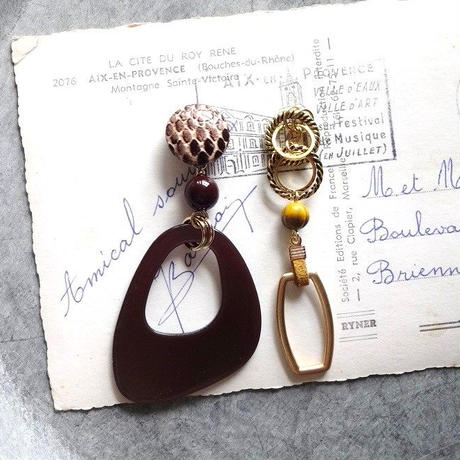 LA CITE DU ROY RENE
2076 AIX-EN-PROVENCE (Bouches-du-Rhône)
Montagne Sainte-Victoire
AIX-EN-PROVENCE
VILLE D'EAUX
VILLE D'ART
Festival
de Musique
(EN JUILLET)
Amical
M. et M
Bouleva
Brienn
Société Editions de France
2, rue Clapier, Marseille
interdite
RYNER